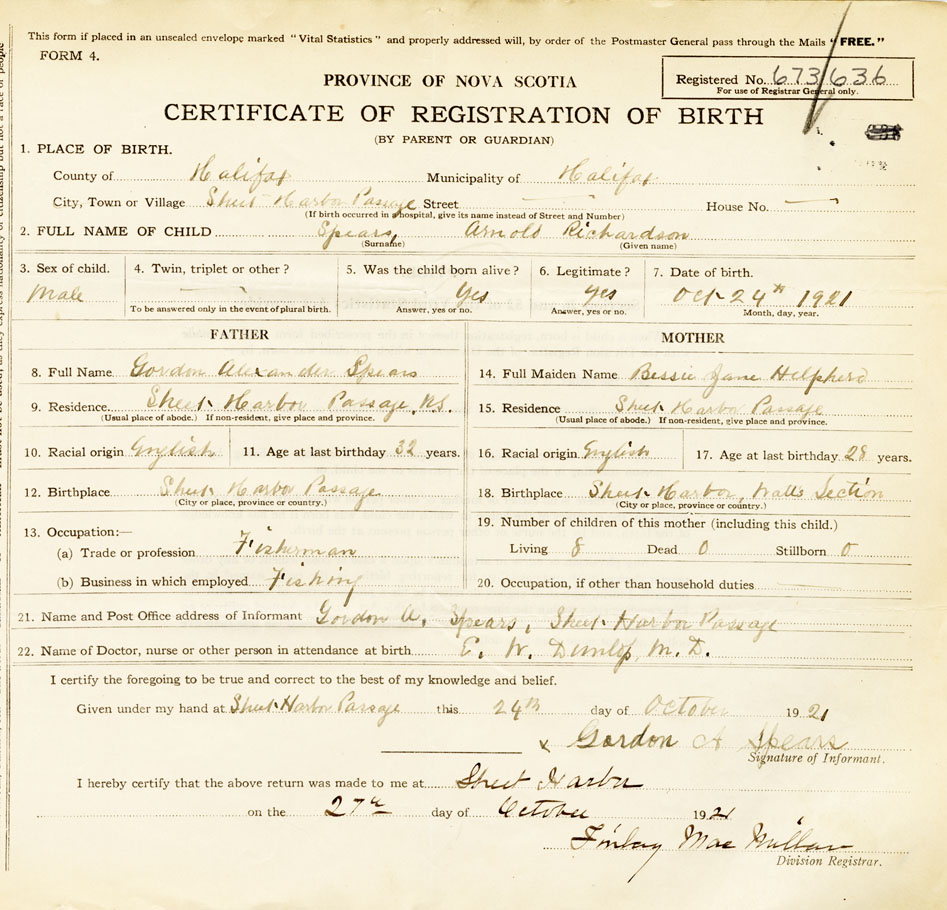 This form if placed in an unsealed envelope marked "Vital Statistics" and properly addressed will, by order of the Postmaster General pass through the Mails "FREE."
FORM 4.
PROVINCE OF NOVA SCOTIA
Registered No. 673/636
For use of Registrar General only.
CERTIFICATE OF REGISTRATION OF BIRTH
(BY PARENT OR GUARDIAN)
1. PLACE OF BIRTH.
County of Halifax Municipality of Halifax
City, Town or Village Sheet Harbor Passage Street — House No. —
(If birth occurred in hospital, give its name instead of Street and Number)
2. FULL NAME OF CHILD Spears, Arnold Richardson
(Surname) (Given name)
3. Sex of child. 4. Twin, triplet or other? 5. Was the child born alive? 6. Legitimate? 7. Date of birth.
Male — Yes yes Oct 24th 1921
To be answered only in the event of plural birth. Answer, yes or no. Answer, yes or no. Month, day, year.
FATHER MOTHER
8. Full Name Gordon Alexander Spears 14. Full Maiden Name Bessie Jane
9. Residence Sheet Harbor Passage, N.S. 15. Residence Sheet Harbor Passage
(Usual place of abode.) If non-resident, give place and province. (Usual place of abode.) If non-resident, give place and province.
10. Racial origin English 11. Age at last birthday 32 years. 16. Racial origin English 17. Age at last birthday 28 years.
12. Birthplace Sheet Harbor Passage 18. Birthplace Sheet Harbor, Watts Section
(City or place, province or country.) (City or place, province or country.)
13. Occupation:— 19. Number of children of this mother (including this child.)
(a) Trade or profession Fisherman Living 8 Dead 0 Stillborn 0
(b) Business in which employed Fishing 20. Occupation, if other than household duties —
21. Name and Post Office address of Informant Gordon A. Spears, Sheet Harbor Passage
22. Name of Doctor, nurse or other person in attendance at birth E. W. Dunlop, M.D.
I certify the foregoing to be true and correct to the best of my knowledge and belief.
Given under my hand at Sheet Harbor Passage this 24th day of October 1921
x Gordon A Spears
Signature of Informant.
I hereby certify that the above return was made to me at Sheet Harbor
on the 27th day of October 1921
Finlay MacMillan
Division Registrar.